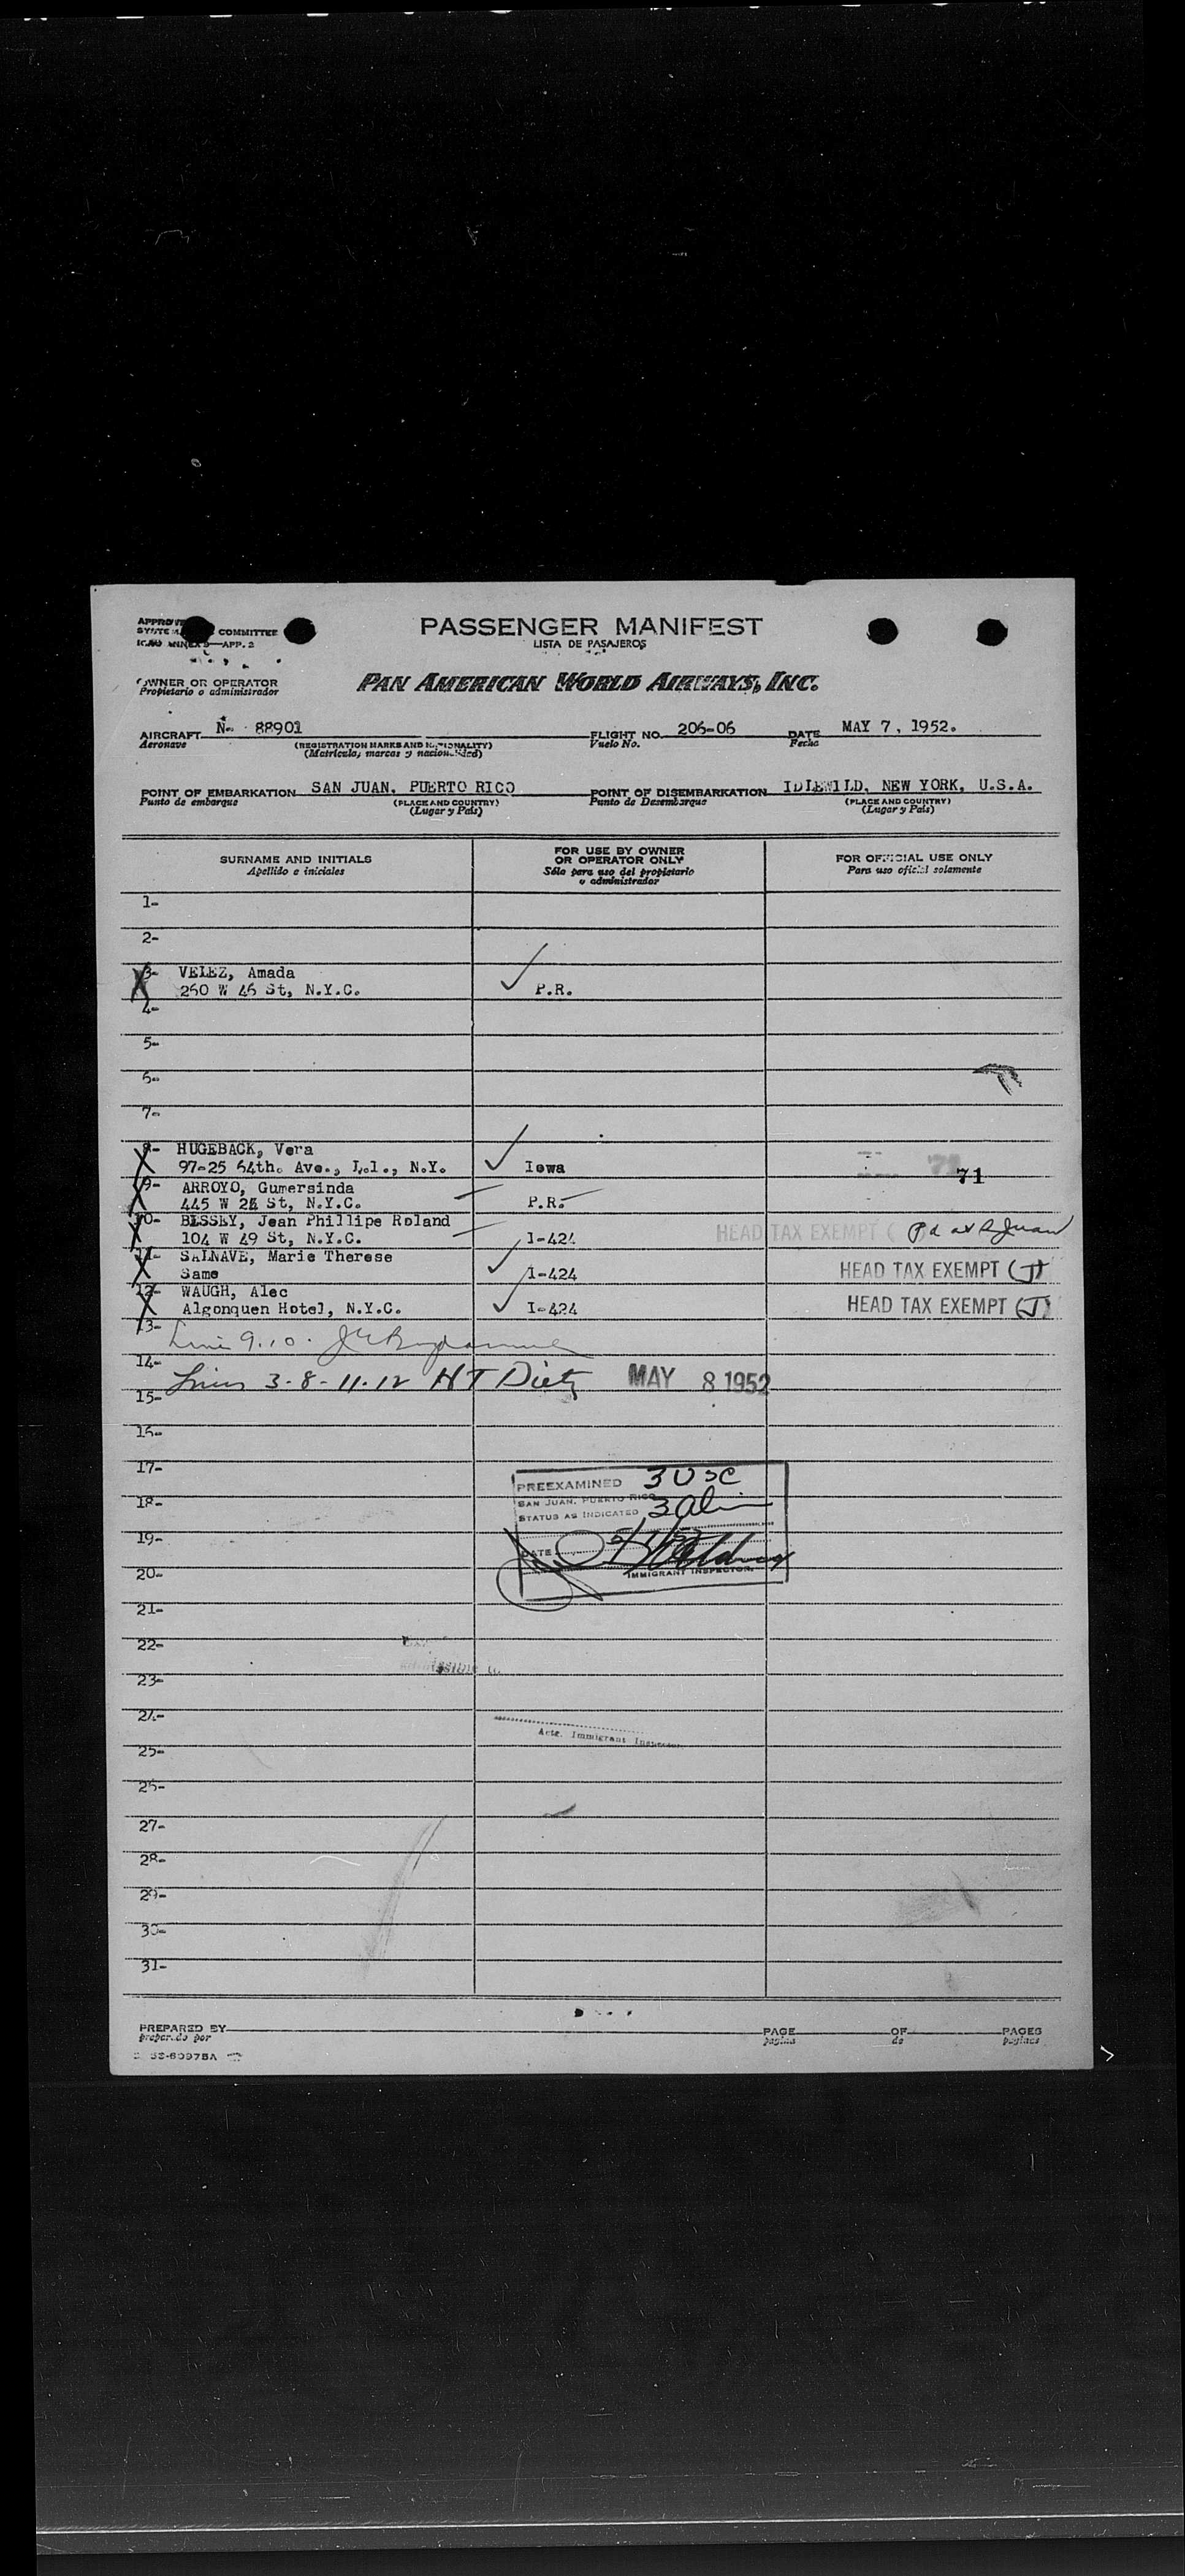 PASSENGER MANIFEST
LISTA DE PASAJEROS
COMMITTEE
APP. 2
OWNER OR OPERATOR
Propietario o administrador
PAN AMERICAN WORLD AIRWAYS, INC.
AIRCRAFT N- 88901 FLIGHT NO. 206-06 DATE MAY 7, 1952.
Aeronave (REGISTRATION MARKS AND NATIONALITY) Vuelo No. Fecha
(Matricula, marcas y nacionalidad)
POINT OF EMBARKATION SAN JUAN, PUERTO RICO POINT OF DISEMBARKATION IDLEWILD, NEW YORK, U.S.A.
Punto de embarque (PLACE AND COUNTRY) Punto de Desembarque (PLACE AND COUNTRY)
(Lugar y País) (Lugar y País)
SURNAME AND INITIALS FOR USE BY OWNER OR OPERATOR ONLY FOR OFFICIAL USE ONLY
Apellido e iniciales Sólo para uso del propietario o administrador Para uso oficial solamente
1-
2-
3- VELEZ, Amada
260 W 46 St, N.Y.C. P.R.
4-
5-
6-
7-
8- HUGEBACK, Vera
97-25 64th. Ave., L.I., N.Y. Iowa 71
9- ARROYO, Gumersinda
445 W 28 St, N.Y.C. P.R.
10- BESSEY, Jean Phillipe Roland
104 W 49 St, N.Y.C. I-424 HEAD TAX EXEMPT ( Pd at S Juan
11- SALNAVE, Marie Therese
Same I-424 HEAD TAX EXEMPT (J)
12- WAUGH, Alec
Algonquen Hotel, N.Y.C. I-424 HEAD TAX EXEMPT (J)
13- Line 9.10.
14-
Lines 3-8-11-12 H T Dietz MAY 8 1952
15-
16-
17-
PREEXAMINED 3 USC
18- SAN JUAN, PUERTO RICO
STATUS AS INDICATED 3 Alien
19-
DATE
20- IMMIGRANT INSPECTOR
21-
22-
23-
24-
Actg. Immigrant Inspector
25-
26-
27-
28-
29-
30-
31-
PREPARED BY PAGE OF PAGES
preparado por pagina de paginas